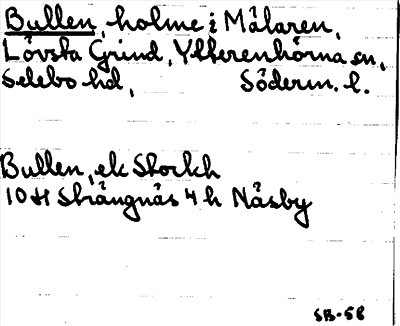 Bullen, holme i Mälaren,
Lövsta Grind, Ytterenhörna sn,
Selebo hd, Söderm. l.
Bullen, ek Stockh
10 H Strängnäs 4 h Näsby
SB-58